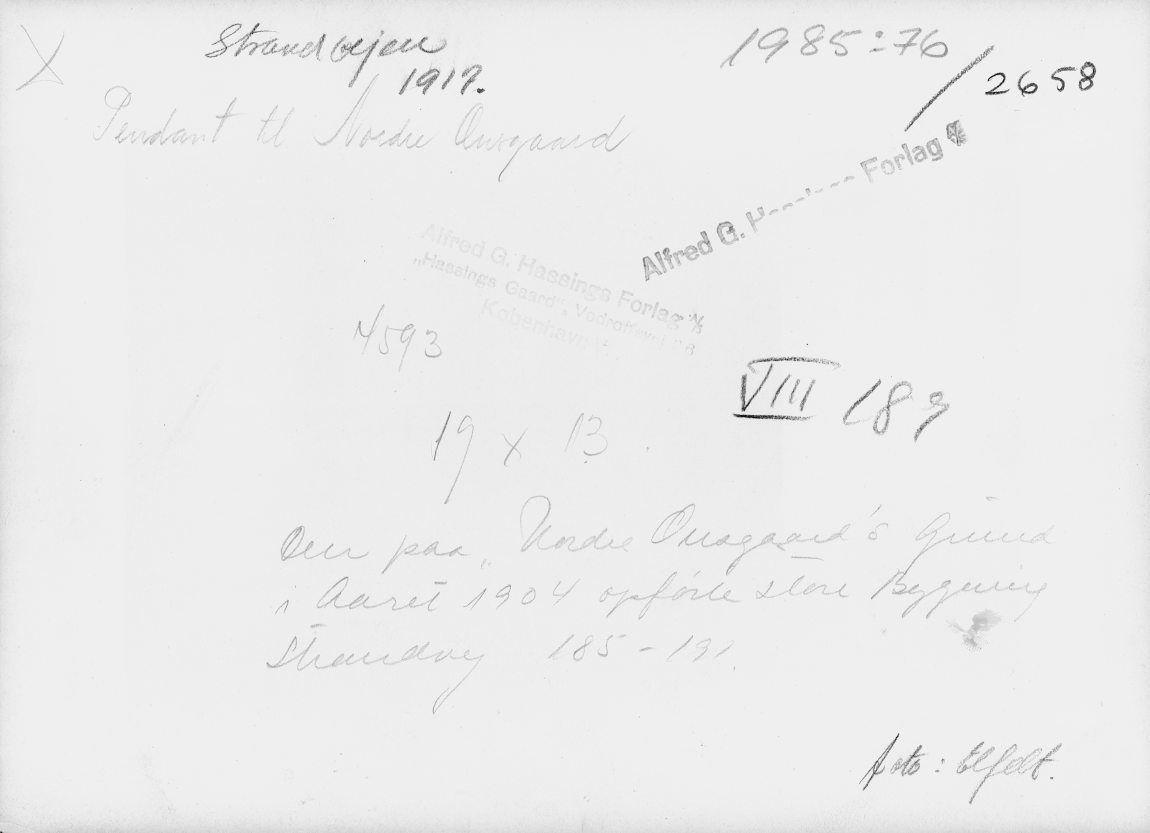 X
Strandvejen
1917.
1985:76
/2658
Pendant til Nordre Onsgaard
Alfred G. Forlag
Alfred G. Hassings Forlag A/S
„Hassings Gaard“, Vodroffsvej 26
København
4593
VIII 183
19 x 13.
Den paa „Nordre Onsgaard's Grund
i Aaret 1904 opførte store Bygning
Strandvej 185 - 191.
foto: Elfelt.